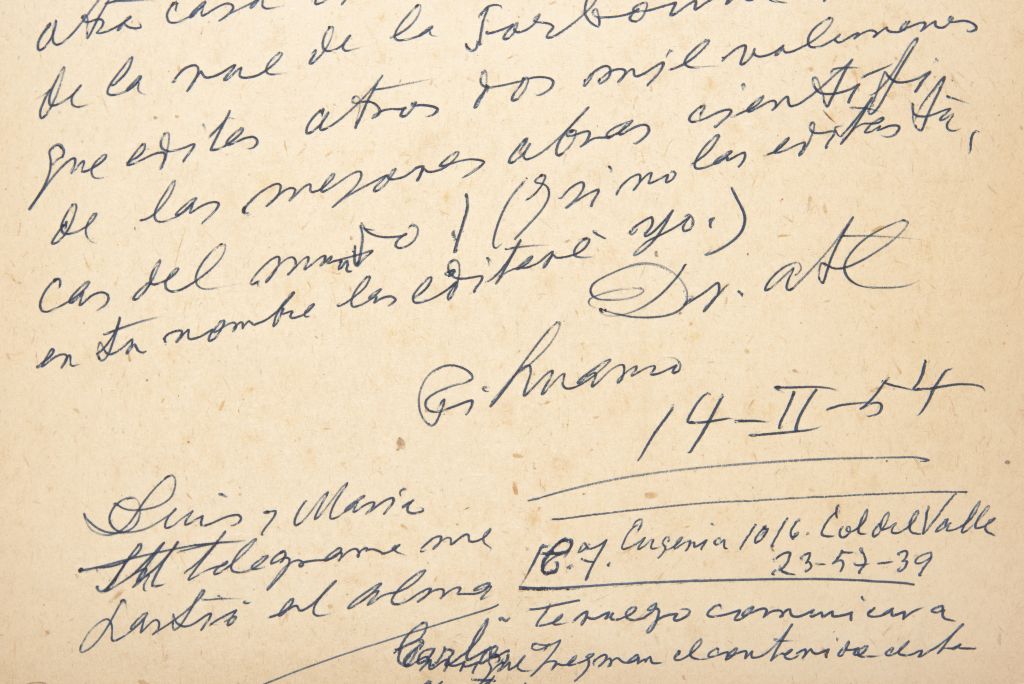 otra casa
de la rue de la Sorbonne
que edites otros dos mil volumenes
de las mejores obras cientifi
cas del mundo! (Y si no las editas tú,
en tu nombre las editaré yo.)
Dr. Atl
Pihuamo
14-II-54
Luis y María
telegrama me
lastió el alma
Eugenia 1016. Col del Valle
23-57-39
te ruego comunicar a
el contenido de esta